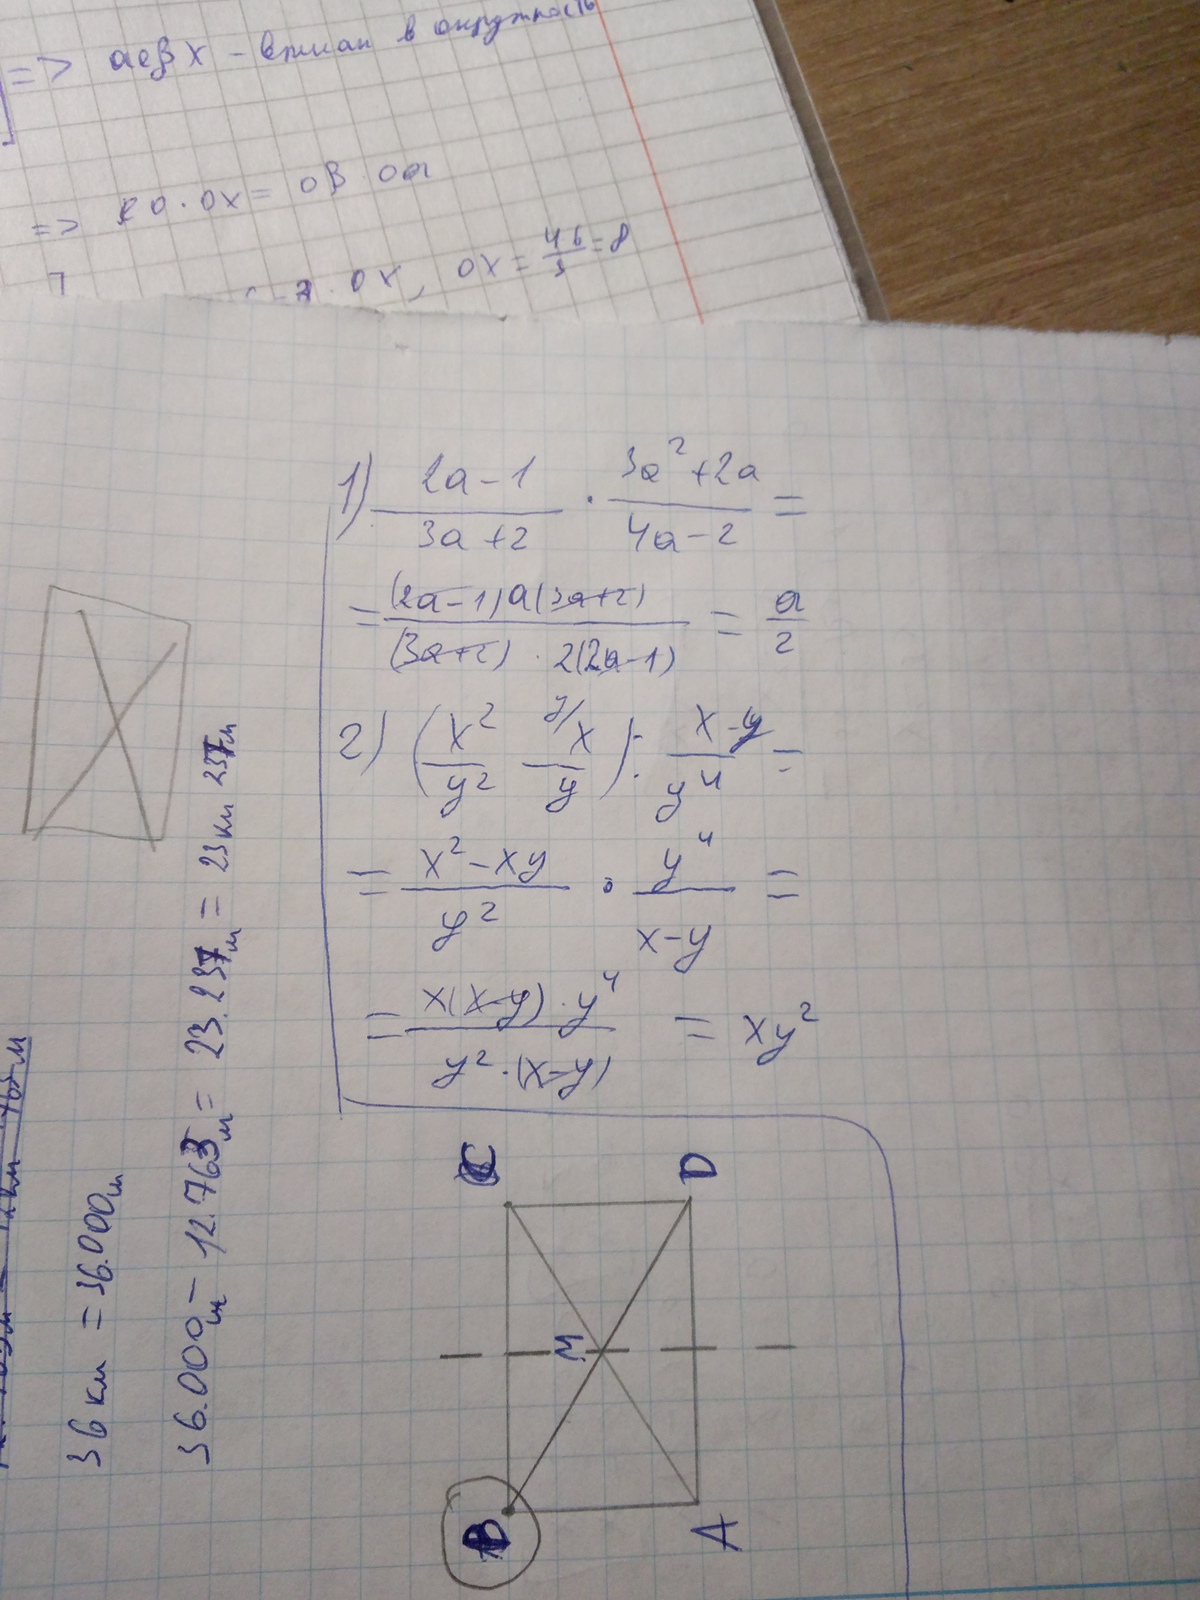 => aeβx - вписан в окружность
=> KO · OX = OB · OA
OX, OX = 46/3 = 8
1) (2a - 1)/(3a + 2) · (3a² + 2a)/(4a - 2) =
= ((2a - 1) a (3a + 2))/((3a + 2) · 2(2a - 1)) = a/2
2) (x²/y² y/ x/y) : (x - y)/y⁴ =
= (x² - xy)/y² · y⁴/(x - y) =
= (x(x - y) · y⁴)/(y² · (x - y)) = xy²
36 км = 36.000м
36.000м - 12.763м = 23.237м = 23км 237м
C
D
M
B
A